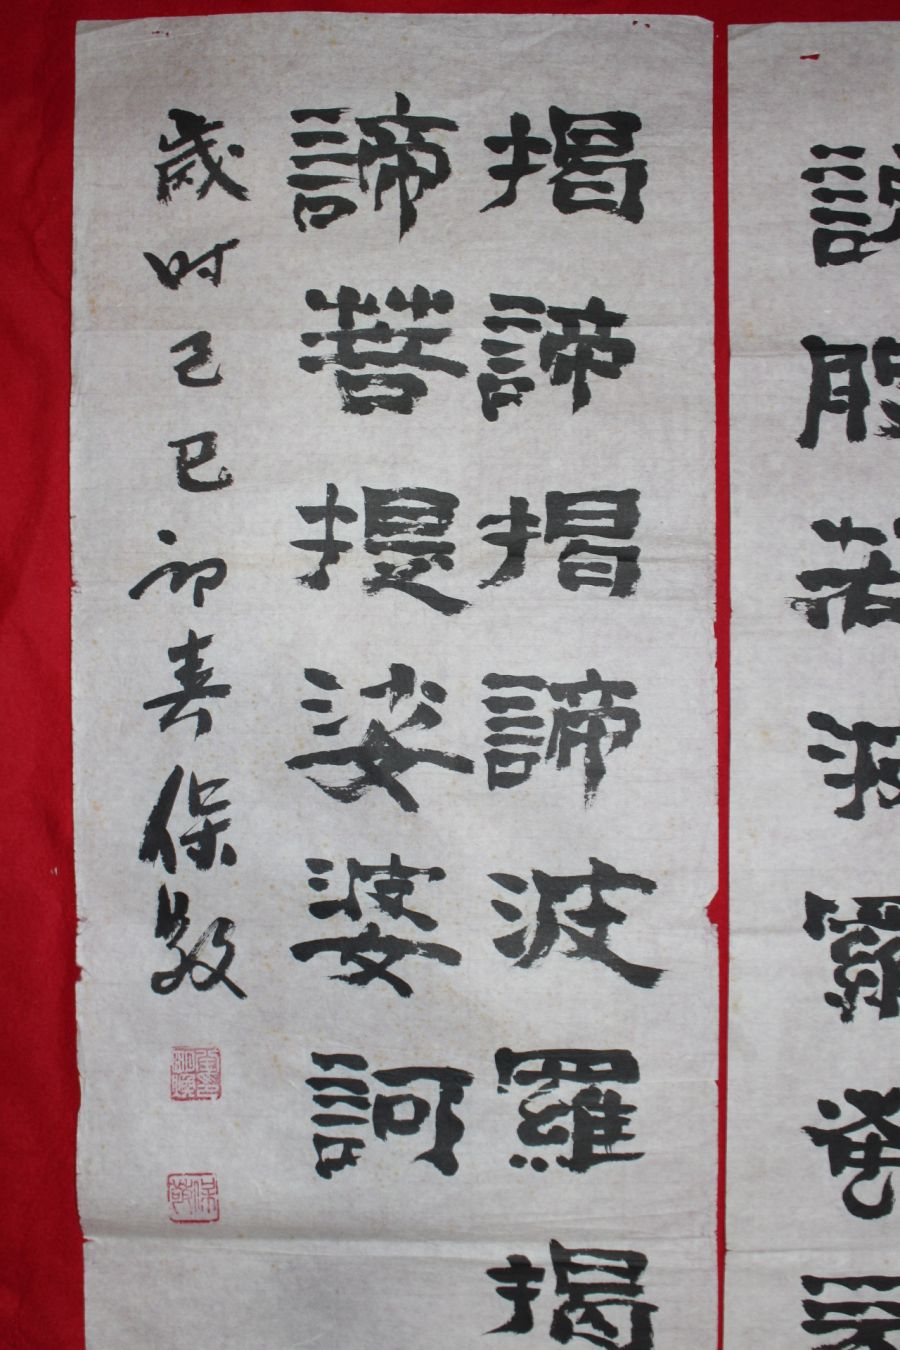 說般若波羅蜜
揭諦揭諦波羅揭
諦菩提娑婆訶
歲时己巳初春保敬